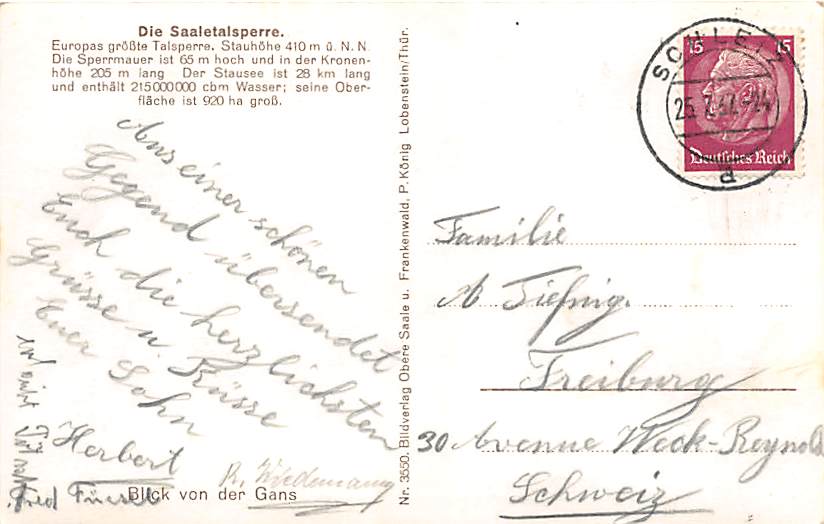 Die Saaletalsperre.
Europas größte Talsperre. Stauhöhe 410 m ü. N. N.
Die Sperrmauer ist 65 m hoch und in der Kronen-
höhe 205 m lang Der Stausee ist 28 km lang
und enthält 215000000 cbm Wasser; seine Ober-
fläche ist 920 ha groß.
Aus einer schönen
Gegend übersendet
Euch die herzlichsten
Grüsse u Küsse
Euer Sohn
Herbert
R. Wiedemann
Fried
Blick von der Gans
Nr. 3550. Bildverlag Obere Saale u. Frankenwald, P. König Lobenstein/Thür.
SCHLEIZ
25. 7. 37.-24
d
15 15
Deutsches Reich
Familie
A Tiefnig.
Freiburg
30 Avenue Weck-Reynold
Schweiz